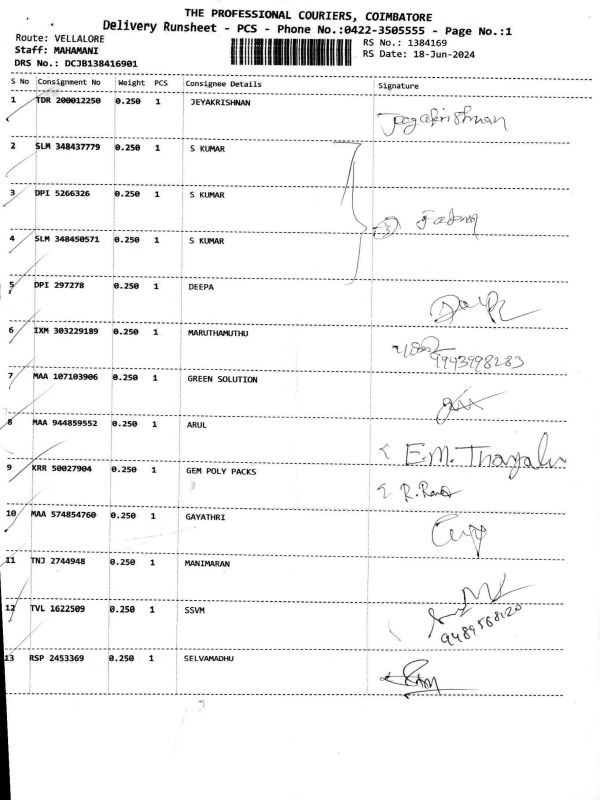 THE PROFESSIONAL COURIERS, COIMBATORE
Delivery Runsheet - PCS - Phone No.:0422-3505555 - Page No.:1
Route: VELLALORE
RS No.: 1384169
Staff: MAHAMANI
RS Date: 18-Jun-2024
DRS No.: DCJB138416901
S No Consignment No Weight PCS Consignee Details Signature
1 TDR 200012250 0.250 1 JEYAKRISHNAN
Jeyakrishnan
2 SLM 348437779 0.250 1 S KUMAR
3 DPI 5266326 0.250 1 S KUMAR
4 SLM 348450571 0.250 1 S KUMAR
5 DPI 297278 0.250 1 DEEPA
6 IXM 303229189 0.250 1 MARUTHAMUTHU
9943998283
7 MAA 107103906 0.250 1 GREEN SOLUTION
8 MAA 944859552 0.250 1 ARUL
E.M.
9 KRR 50027904 0.250 1 GEM POLY PACKS
10 MAA 574854760 0.250 1 GAYATHRI
11 TNJ 2744948 0.250 1 MANIMARAN
12 TVL 1622509 0.250 1 SSVM
9489568120
13 RSP 2453369 0.250 1 SELVAMADHU